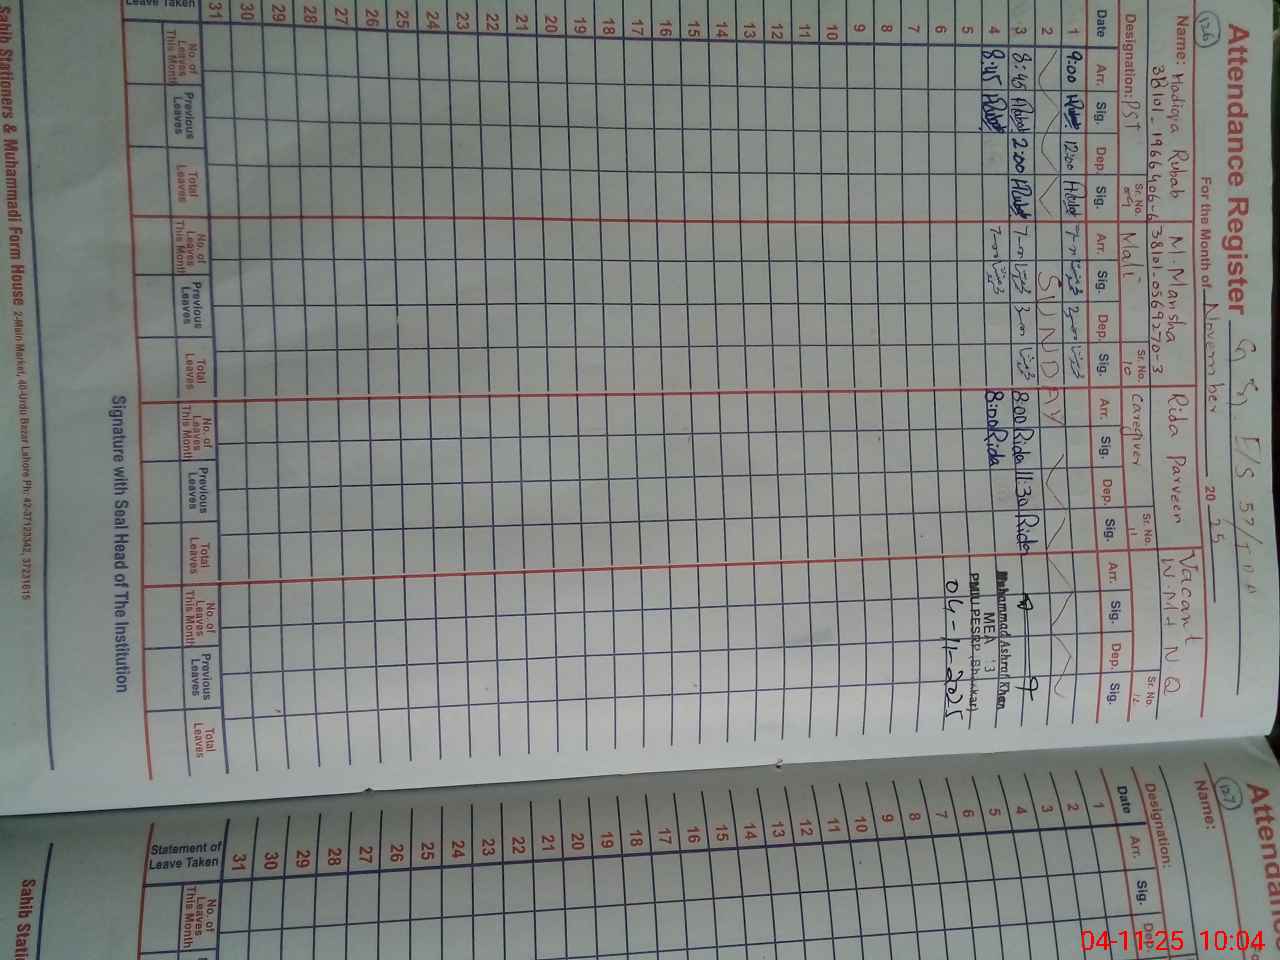 Attendance Register G. G. E/S 57/TDA
126 For the Month of November 20 25
Name: Hadiqa Rubab M. Mansha Rida Parveen Vacant
38101-1966406-6 38101-0569270-3 W.M+NQ
Designation: PST Sr. No. 09 Mali Sr. No. 10 Caregiver Sr. No. 11 Sr. No. 12
Date Arr. Sig. Dep. Sig. Arr. Sig. Dep. Sig. Arr. Sig. Dep. Sig. Arr. Sig. Dep. Sig.
1 9:00 HRubab 12:00 HRubab
2 SUNDAY
3 8:45 HRubab 2:00 HRubab 8:00 Rida 11:30 Rida
4 8:45 HRubab 8:00 Rida Muhammad Ashraf Khan
MEA 13
5 PMIU PESRP (Bhakkar)
6 04-11-2025
7
8
9
10
11
12
13
14
15
16
17
18
19
20
21
22
23
24
25
26
27
28
29
30
31
Leave Taken No. of Leaves This Month Previous Leaves Total Leaves No. of Leaves This Month Previous Leaves Total Leaves No. of Leaves This Month Previous Leaves Total Leaves No. of Leaves This Month Previous Leaves Total Leaves
Signature with Seal Head of The Institution
Sahib Stationers & Muhammadi Form House 2-Main Market, 40-Urdu Bazar Lahore Ph: 42-37123342, 37231615
Attenda
127
Name:
Designation:
Date Arr. Sig. Dep.
1
2
3
4
5
6
7
8
9
10
11
12
13
14
15
16
17
18
19
20
21
22
23
24
25
26
27
28
29
30
31
Statement of Leave Taken No. of Leaves This Month
Sahib Stati
04-11-25 10:04